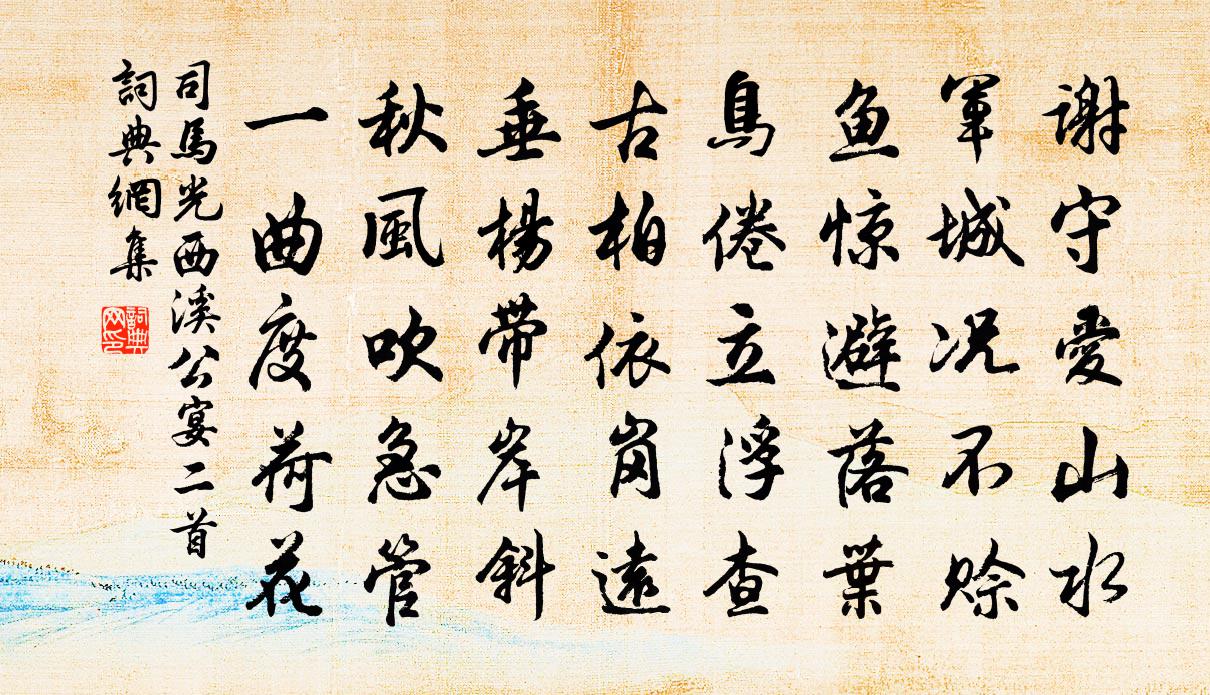 谢守爱山水
军城况不赊
鱼惊避落葉
鳥倦立浮查
古柏依岗遠
垂楊带岸斜
秋風吹急管
一曲度荷花
司馬光西溪公宴二首
詞典網集
詞典网印